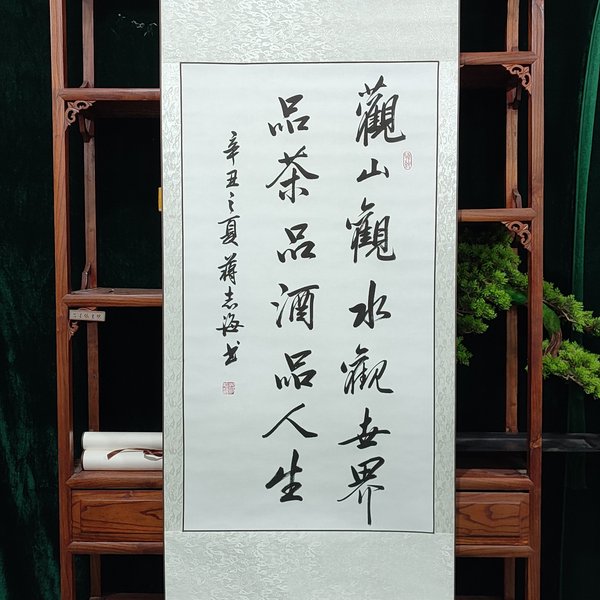 觀山觀水觀世界
品茶品酒品人生
辛丑之夏蒋志海书